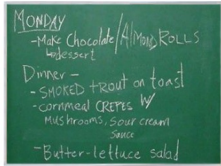 MONDAY
- Make Chocolate/Almond ROLLS
↳ dessert
Dinner -
- SMOKED trout on toast
- cornmeal CREPES W/
Mushrooms, Sour cream
Sauce
- Butter-lettuce salad